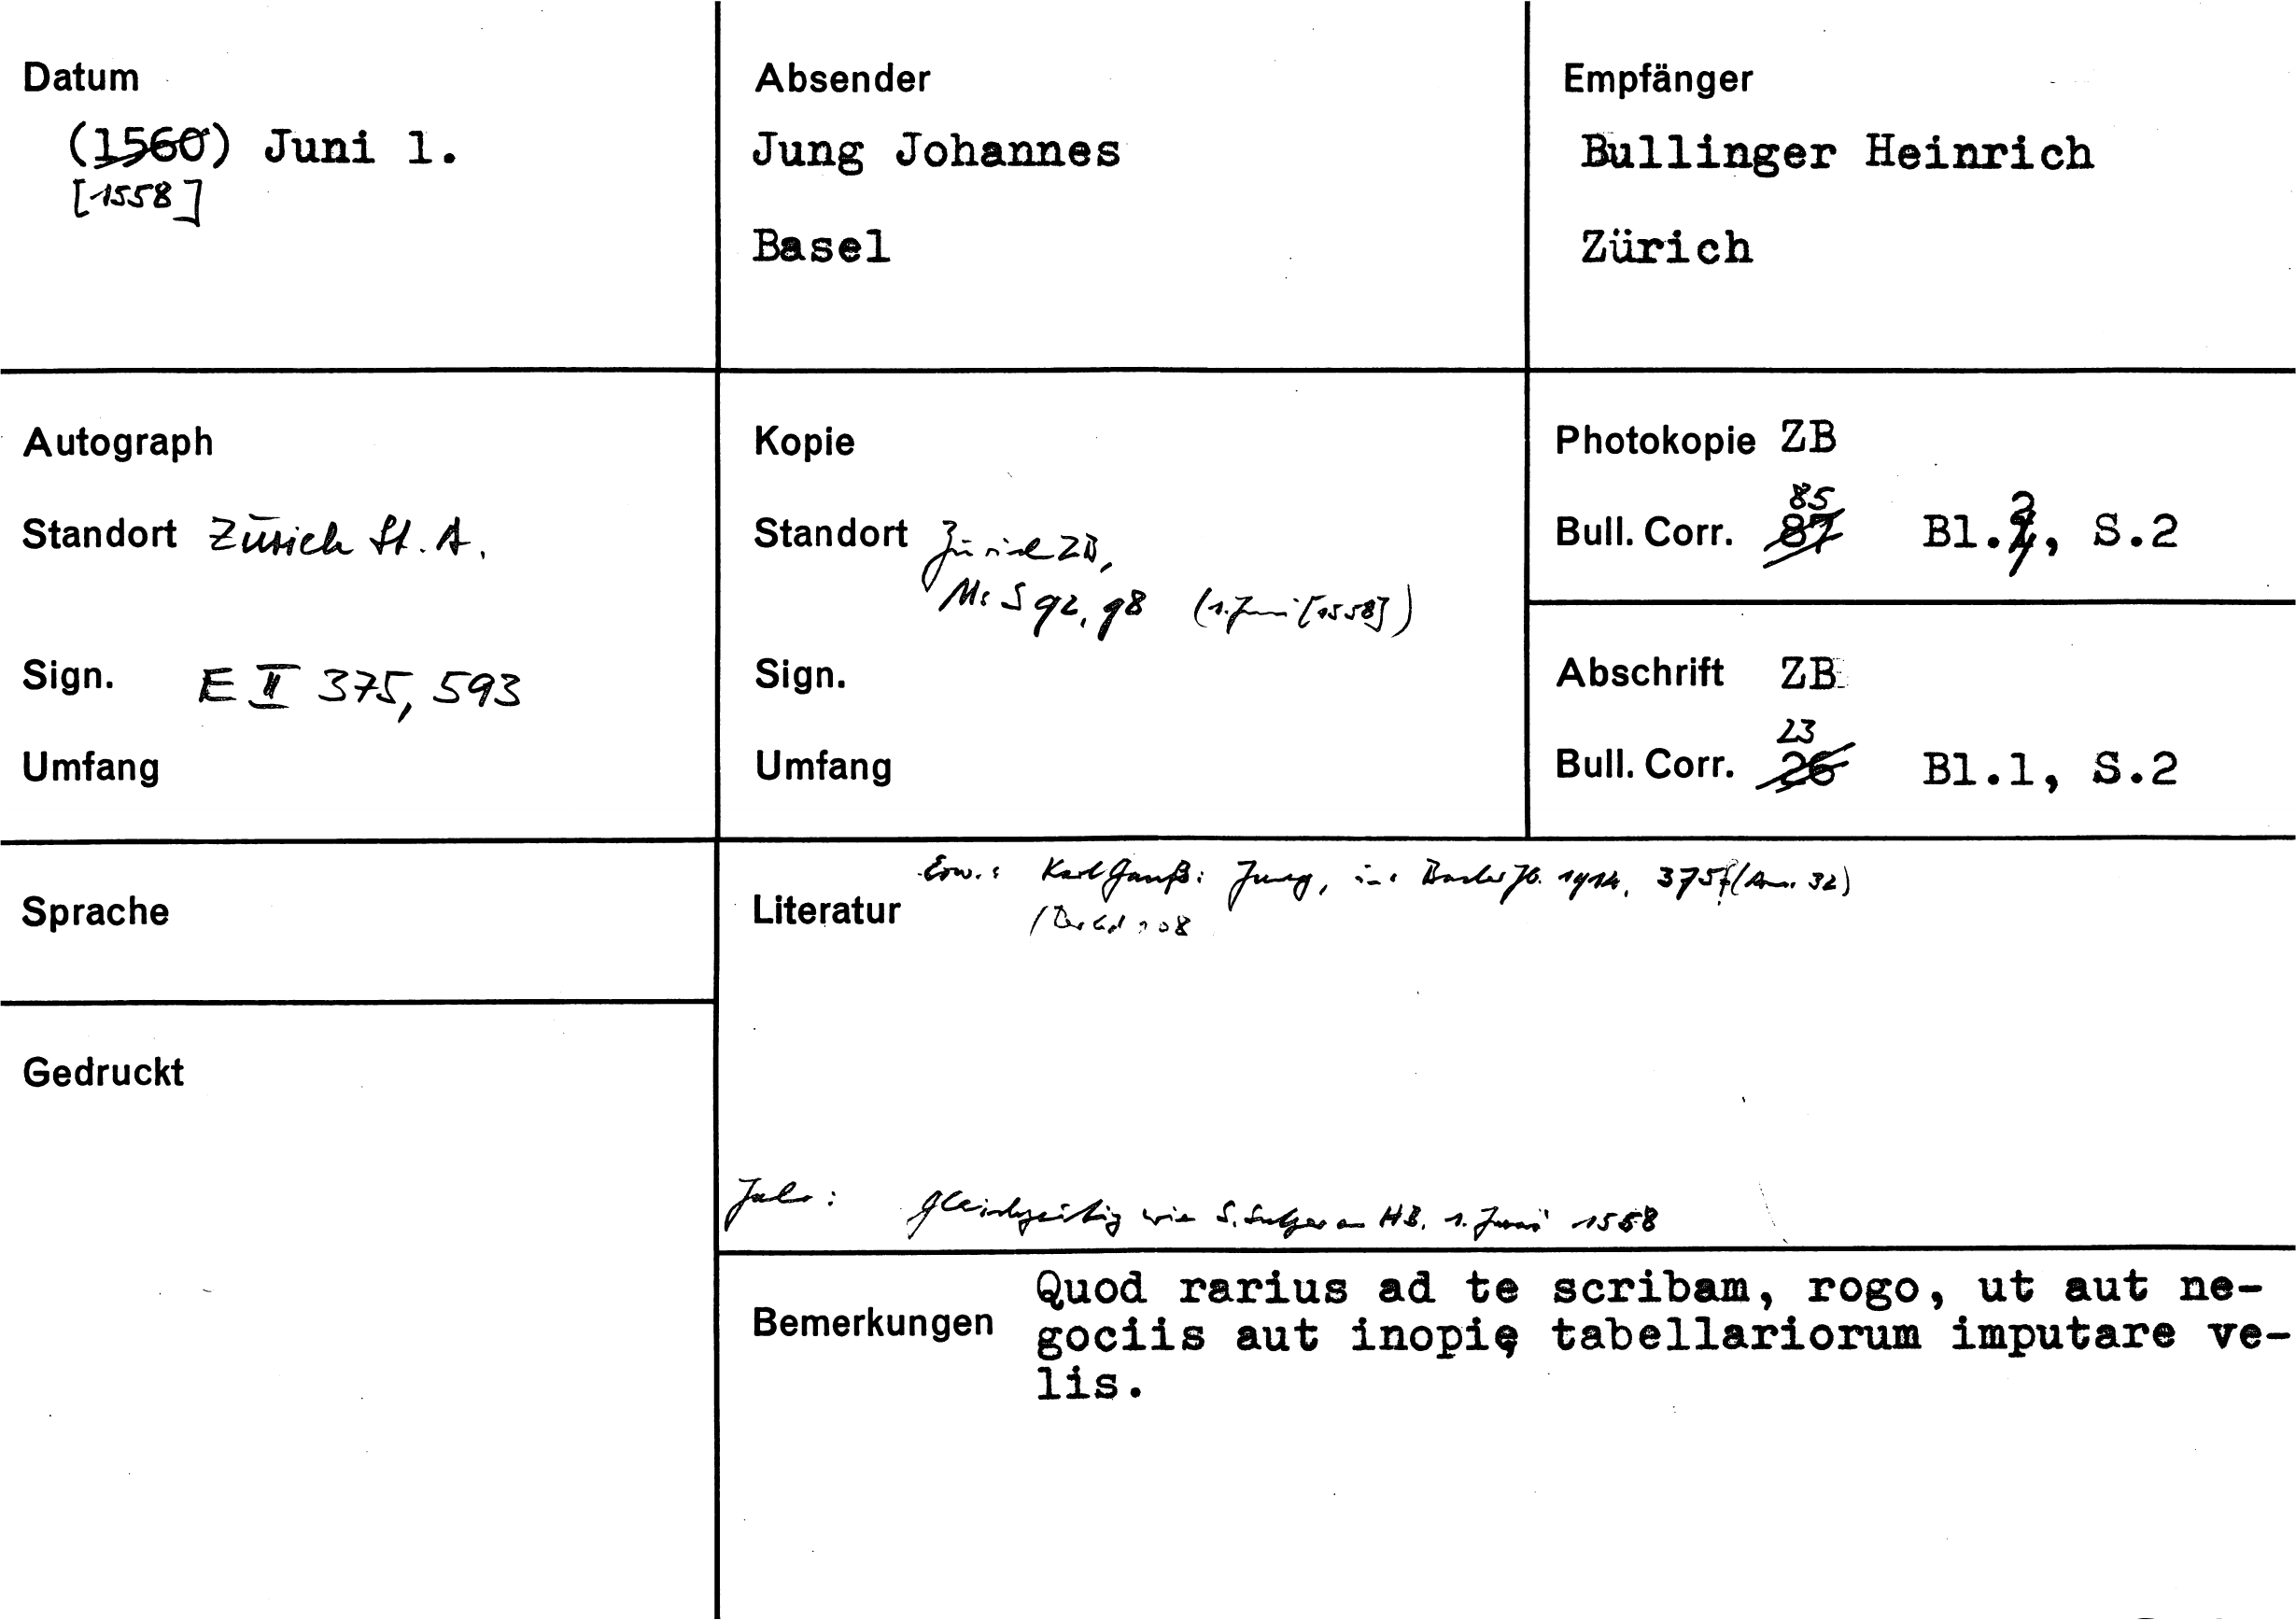 Datum
(1560) Juni 1.
[1558]
Absender
Jung Johannes
Basel
Empfänger
Bullinger Heinrich
Zürich
Autograph
Standort Zürich St. A.
Sign. E II 375, 593
Umfang
Kopie
Standort Zürich ZB,
Ms S 92, 98 (1. Juni [1558])
Sign.
Umfang
Photokopie ZB
85
Bull. Corr. 87 Bl. 2, S.2
Abschrift ZB
23
Bull. Corr. 26 Bl.1, S.2
Sprache
Gedruckt
Erw.: Karl Gauß: Jung, in: Basler Jb. 1914, 375f (Anm. 32)
Literatur
Jahr: gleichzeitig wie S. Sulzer an HB, 1. Juni 1558
Bemerkungen
Quod rarius ad te scribam, rogo, ut aut ne-
gociis aut inopię tabellariorum imputare ve-
lis.